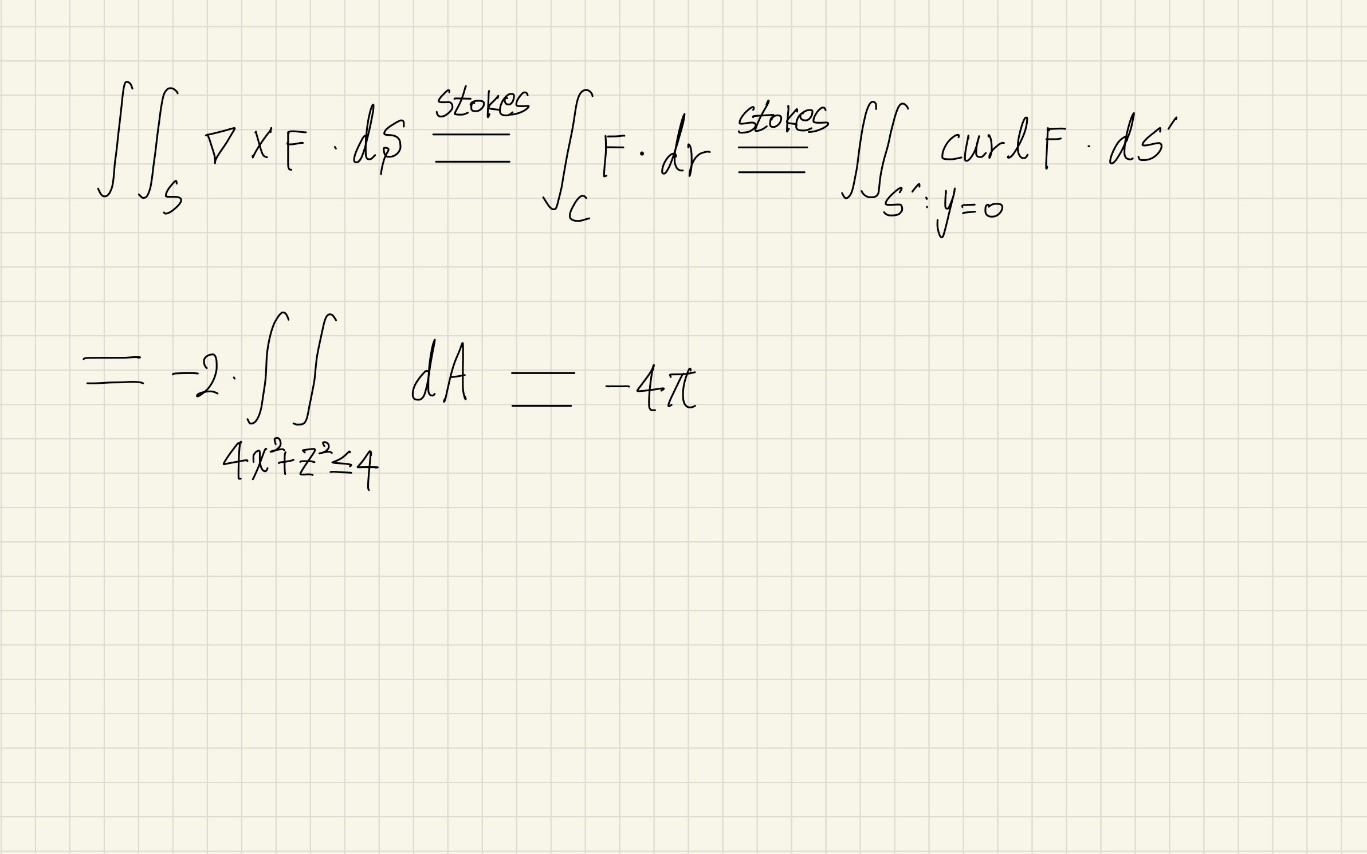 ∬_S ∇×F · dS =^{stokes} ∫_C F · dr =^{stokes} ∬_{S′: y=0} curl F · dS′
= -2 · ∬_{4x²+z²≤4} dA = -4π